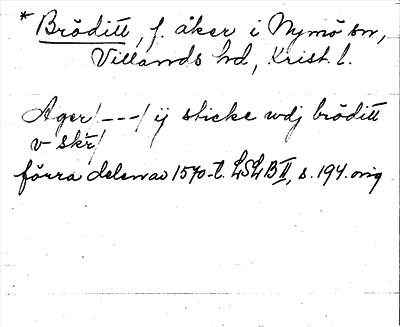 * Bröditt, f. åker i Nymö sn,
Villands hd, Krist. l.
Ager/---/ ij sticke wdj bröditt
v skr/
förra delen av 1570-t. LSLB II, s. 194. orig